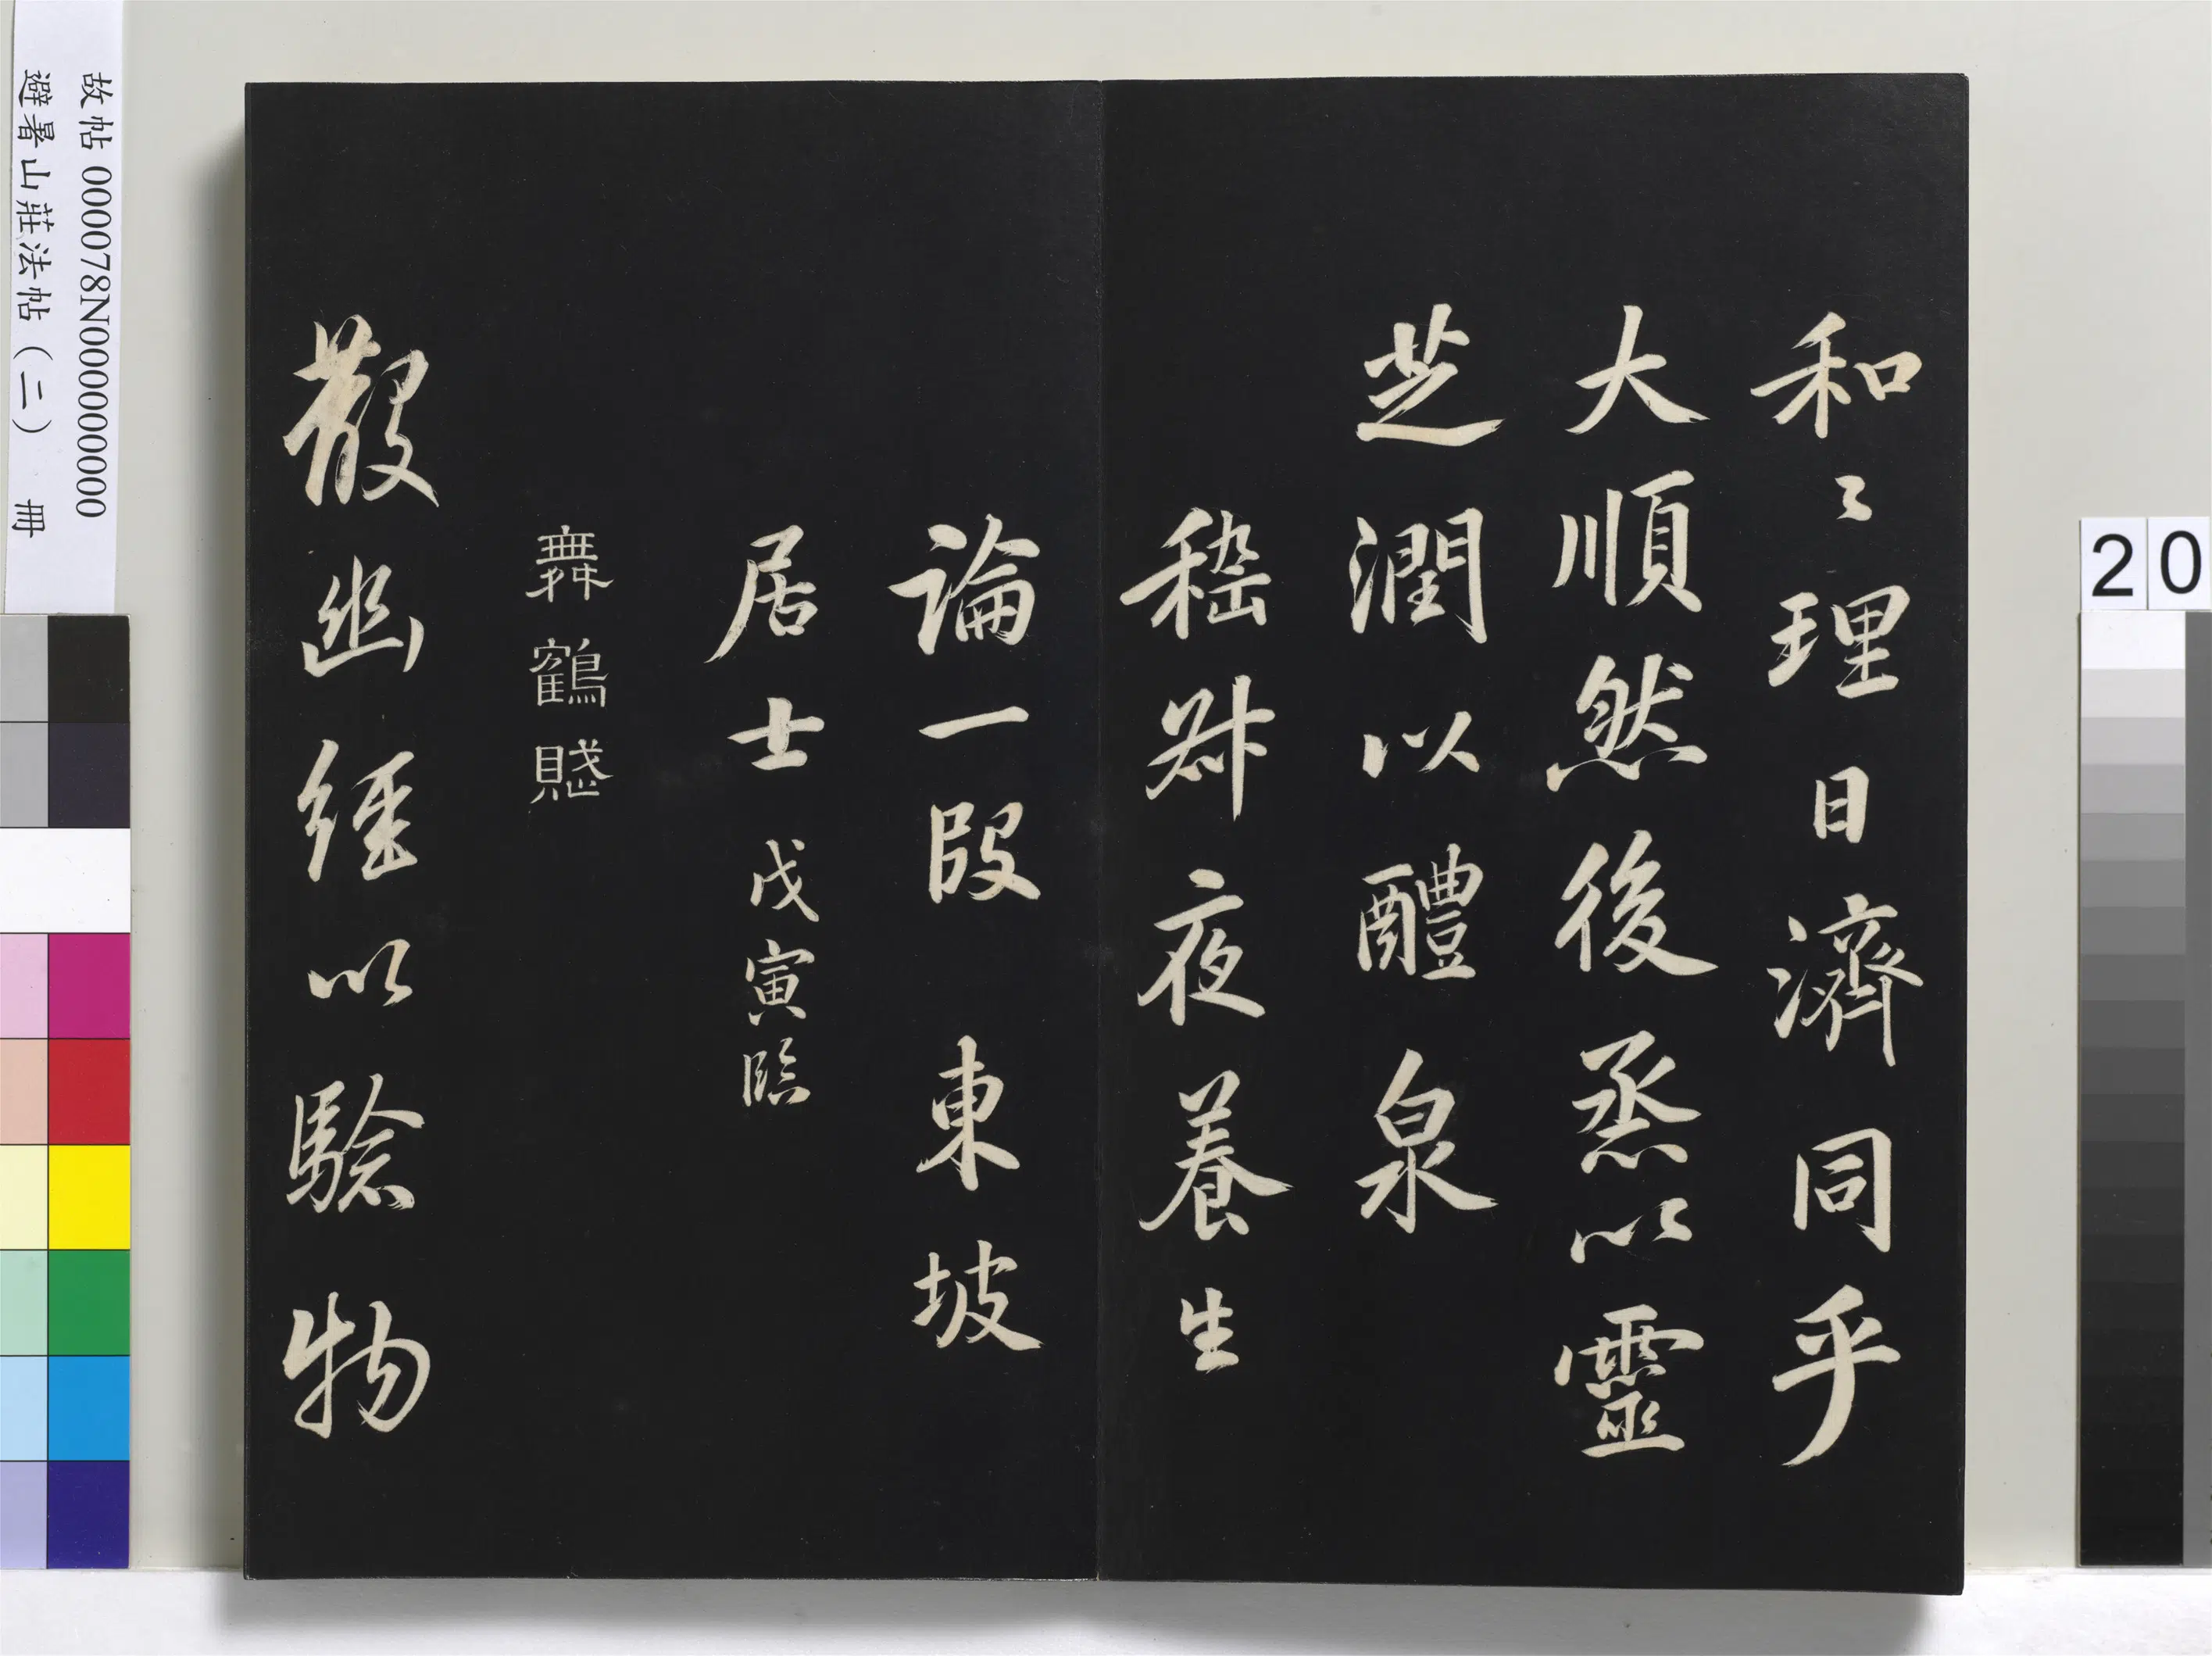 和〻理日濟同乎
大順然後烝以靈
芝潤以醴泉
嵇叔夜養生
論一段 東坡
居士 戊寅臨
舞鶴賦
散幽經以驗物
故帖 000078N000000000
避暑山莊法帖（二） 冊
20